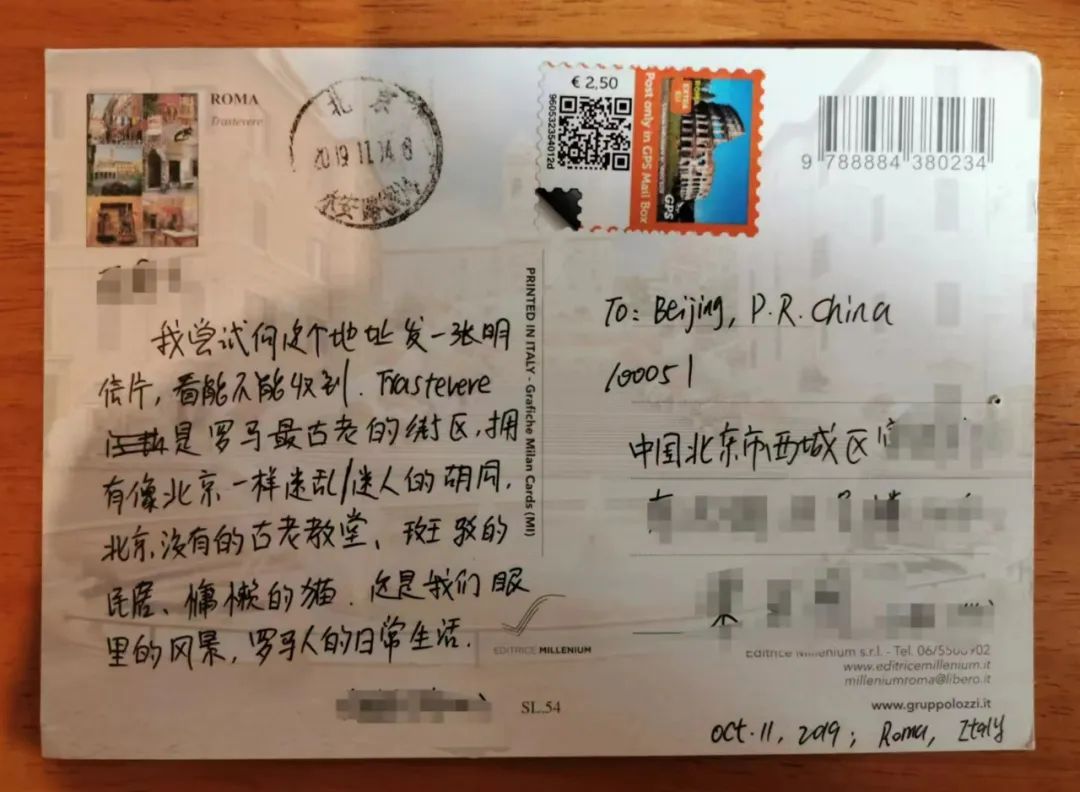 ROMA
Trastevere
北京
2019 11 14 8
€ 2,50
960532354012d
Post only in GPS Mail Box
EXTRA EU
GPS
9 788884 380234
PRINTED IN ITALY - Grafiche Milan Cards (MI)
我尝试向这个地址发一张明
信片，看能不能收到. Trastevere
是罗马最古老的街区，拥
有像北京一样迷乱/迷人的胡同，
北京没有的古老教堂、斑驳的
民居、慵懒的猫. 这是我们眼
里的风景，罗马人的日常生活.
EDITRICE MILLENNIUM
SL.54
To: Beijing, P.R. China
100051
中国北京市西城区
Editrice Millenium s.r.l. - Tel. 06/5500902
www.editricemillenium.it
milleniumroma@libero.it
www.gruppolozzi.it
Oct. 11, 2019; Roma, Italy